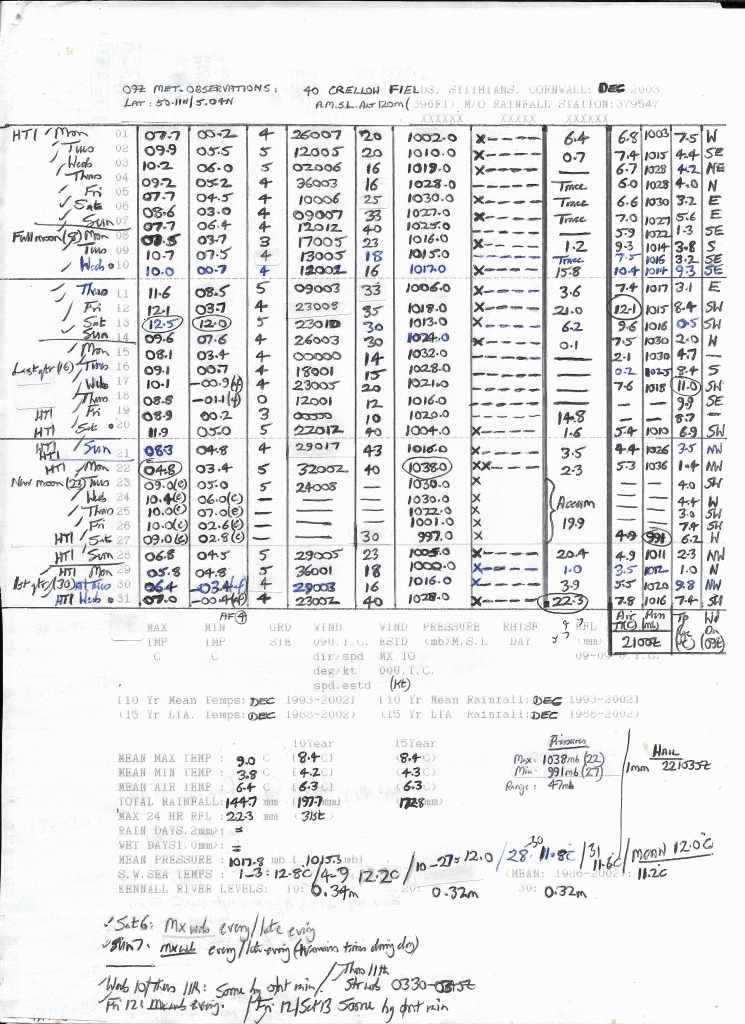 09Z MET. OBSERVATIONS: 40 CRELLOW FIELDS, STITHIANS, CORNWALL: DEC 2003
LAT: 50.11N/5.04N A.M.S.L. Alt 120m (396Ft) M/O RAINFALL STATION: 379547
XXXXXX XXXXX XXXXXX
HTI / Mon 01 07.7 00.2 4 26007 20 1002.0 X----- 6.4 6.8 1003 7.5 W
Tues 02 09.9 05.5 5 12005 20 1010.0 X----- 0.7 7.4 1015 4.4 SE
Weds 03 10.2 06.0 5 02006 16 1019.0 X----- 6.7 1028 4.2 NE
Thurs 04 09.2 05.2 4 36003 16 1028.0 Trace 6.0 1028 4.0 N
Fri 05 07.7 04.5 4 10006 25 1030.0 X----- Trace 6.6 1030 3.2 E
Sat 06 08.6 03.0 4 09007 33 1027.0 X----- Trace 7.0 1027 5.6 E
Sun 07 07.7 06.4 4 12012 40 1025.0 5.9 1022 1.3 SE
Full moon (8) Mon 08 08.5 03.7 3 17005 23 1016.0 X----- 1.2 9.3 1014 3.8 S
Tues 09 10.7 07.5 4 13005 18 1015.0 X----- Trace 7.5 1016 3.2 SE
Weds 10 10.0 00.7 4 12002 16 1017.0 X----- 15.8 10.4 1014 9.3 SE
Thurs 11 11.6 08.5 5 09003 33 1006.0 X----- 3.6 7.4 1017 3.1 E
Fri 12 12.1 03.7 4 23008 35 1018.0 X----- 21.0 12.1 1015 8.4 SW
Sat 13 12.5 12.0 5 23010 30 1013.0 X----- 6.2 9.6 1016 0.5 SW
Sun 14 09.6 07.6 4 26003 30 1024.0 X----- 0.1 7.5 1030 2.0 W
Mon 15 08.1 03.4 4 00000 14 1032.0 2.1 1030 4.7 —
Last qtr (16) Tues 16 09.1 00.7 4 18001 15 1028.0 0.2 1025 8.4 S
Weds 17 10.1 -00.9(f) 4 23005 20 1021.0 7.6 1018 11.0 SW
Thurs 18 08.8 -01.1(f) 0 12001 12 1016.0 — — 9.9 SE
HTI / Fri 19 08.9 00.2 3 00000 10 1020.0 14.8 — — 8.7 —
HTI Sat 20 11.9 05.0 5 22012 40 1004.0 X----- 1.6 5.4 1010 6.9 SW
HTI / HTI Sun 21 08.3 04.8 4 29017 43 1016.0 X----- 3.5 4.4 1026 3.5 NW
HTI / Mon 22 04.8 03.4 5 32002 40 1038.0 XX---- 2.3 5.3 1036 1.4 NW
New moon (23) Tues 23 09.0(e) 05.0 5 24008 1030.0 X — — 4.0 SW
Weds 24 10.4(e) 06.0(e) — — — 1030.0 X Accum — — 4.4 W
Thurs 25 10.0(e) 07.0(e) — — — 1022.0 X 19.9 — — 3.0 SW
Fri 26 10.0(e) 02.6(e) — — — 1001.0 X — — 7.4 SW
HTI Sat 27 09.0(e) 02.8(e) — — 30 997.0 X 4.9 991 6.2 W
HTI / Sun 28 06.8 04.5 5 29005 23 1005.0 X----- 20.4 4.9 1011 2.3 NW
HTI Mon 29 05.8 04.8 5 36001 18 1000.0 X----- 1.0 3.5 1012 1.0 N
1st qtr (30) HTI Tues 30 06.4 -03.4(af) 4 29003 16 1016.0 X----- 3.9 5.5 1020 9.8 NW
HTI Weds 31 07.0 -00.4(af) 4 23002 40 1028.0 X----- 22.3 7.8 1016 7.4 SW
AF(4)
MAX MIN GRD WIND WIND PRESSURE RHTSF RFL Air Prss Tp Wd
TMP TMP STE 09U.T.C. ESTD (mb)M.S.L DAY (mm) T(C) mb Rge Dn
C C dir/spd MX TO 09-09.U.T.C. 2100Z (°C) (09Z)
deg/kt 00U.T.C.
spd.estd (Kt)
[10 Yr Mean Temps: DEC 1993-2002] [10 Yr Mean Rainfall: DEC 1993-2002]
(15 Yr LTA. Temps: DEC 1988-2002) (15 Yr LTA Rainfall: DEC 1988-2002)
10Year 15Year Pressures HAIL
MEAN MAX TEMP : 9.0 C 8.4 C 8.4 C) Max: 1038mb (22) 1mm 221035Z
MEAN MIN TEMP : 3.8 C 4.2 C 4.3 C) Min: 991mb (27)
MEAN AIR TEMP : 6.4 C 6.3 C 6.3 C) Range: 47mb
TOTAL RAINFALL: 144.7 mm 197.7 172.8
MAX 24 HR RFL : 22.3 mm 31st
RAIN DAYS.2mm): =
WET DAYS1.0mm): =
MEAN PRESSURE : 1017.8 mb ( 1015.3 mb)
S.W.SEA TEMPS : 1-3: 12.8°C / 4-9 12.2C / 10-27: 12.0 / 28-30 11.8°C / 31 11.6°C / MEAN 12.0°C
(MEAN: 1986-2002): 11.2c
KENNALL RIVER LEVELS: 10: 0.34m 20: 0.32m 30: 0.32m
Sat 6: Mx wnd every/late evng
Sun 7: mx wnd every/late evng
Weds 10/Thurs 11th: Some hg grnd min / Thurs 11th
Fri 12: Mx wnd evng. / Fri 12/Sat 13 Some hg grnd min